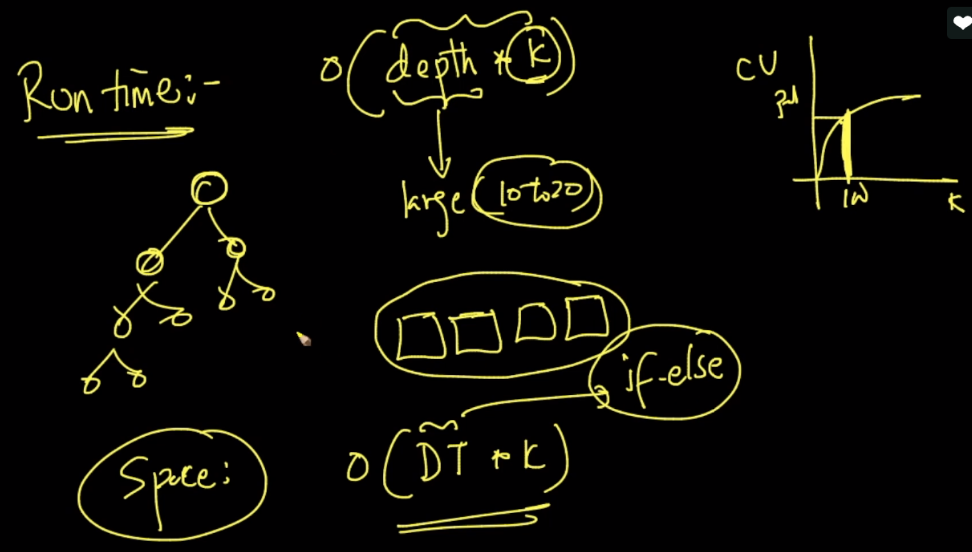 Run time:-
O(depth * K)
large (10 to 20)
CV
K
if-else
Space:
O(DT * K)